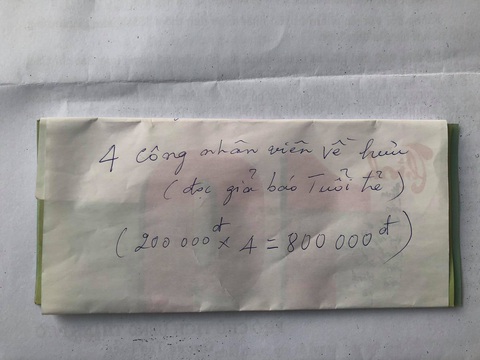 4 công nhân viên về hưu
(đọc giả báo Tuổi trẻ)
(200 000đ × 4 = 800 000đ)